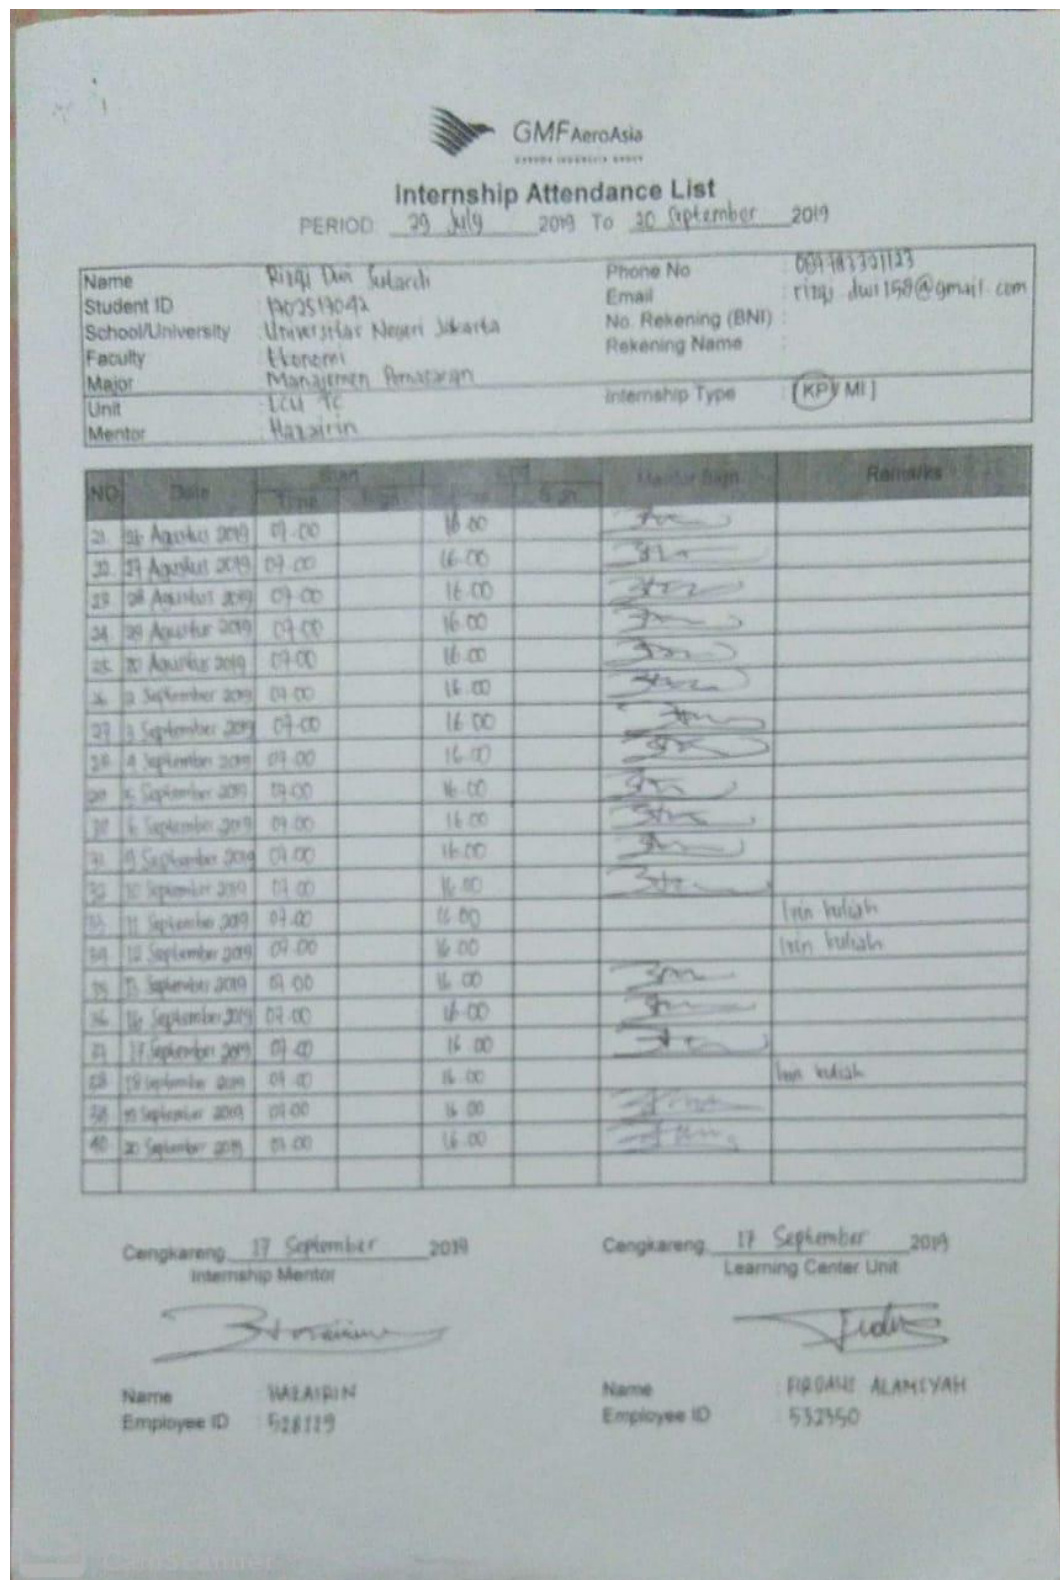 GMF AeroAsia
GARUDA INDONESIA GROUP
Internship Attendance List
PERIOD 29 July 2019 To 20 September 2019
Name : Rizqi Dwi
Student ID
School/University : Universitas Negeri Jakarta
Faculty : Ekonomi
Major : Manajemen Pemasaran
Unit : LCU TC
Mentor : Hazairin
Phone No
Email
No. Rekening (BNI) :
Rekening Name :
Internship Type : [KP / MI ]
NO Date Start Time Sign Sign Mentor Sign Remarks
21. 26 Agustus 2019 07.00 16.00
22. 27 Agustus 2019 07.00 16.00
23 28 Agustus 2019 07.00 16.00
24. 29 Agustus 2019 07.00 16.00
25. 30 Agustus 2019 07.00 16.00
26. 2 September 2019 07.00 16.00
27 3 September 2019 07.00 16.00
28. 4 September 2019 07.00 16.00
29. 5 September 2019 07.00 16.00
30 6 September 2019 07.00 16.00
31. 9 September 2019 07.00 16.00
32 10 September 2019 07.00 16.00
33 11 September 2019 07.00 16.00 Izin kuliah
34 12 September 2019 07.00 16.00 Izin kuliah
35 13 September 2019 07.00 16.00
36 16 September 2019 07.00 16.00
37 17 September 2019 07.00 16.00
38 18 September 2019 07.00 16.00 Izin kuliah
19 September 2019 07.00 16.00
40 20 September 2019 07.00 16.00
Cengkareng 17 September 2019
Internship Mentor
Name : HAZAIRIN
Employee ID :
Cengkareng 17 September 2019
Learning Center Unit
Name : ALAMSYAH
Employee ID : 532350
CamScanner